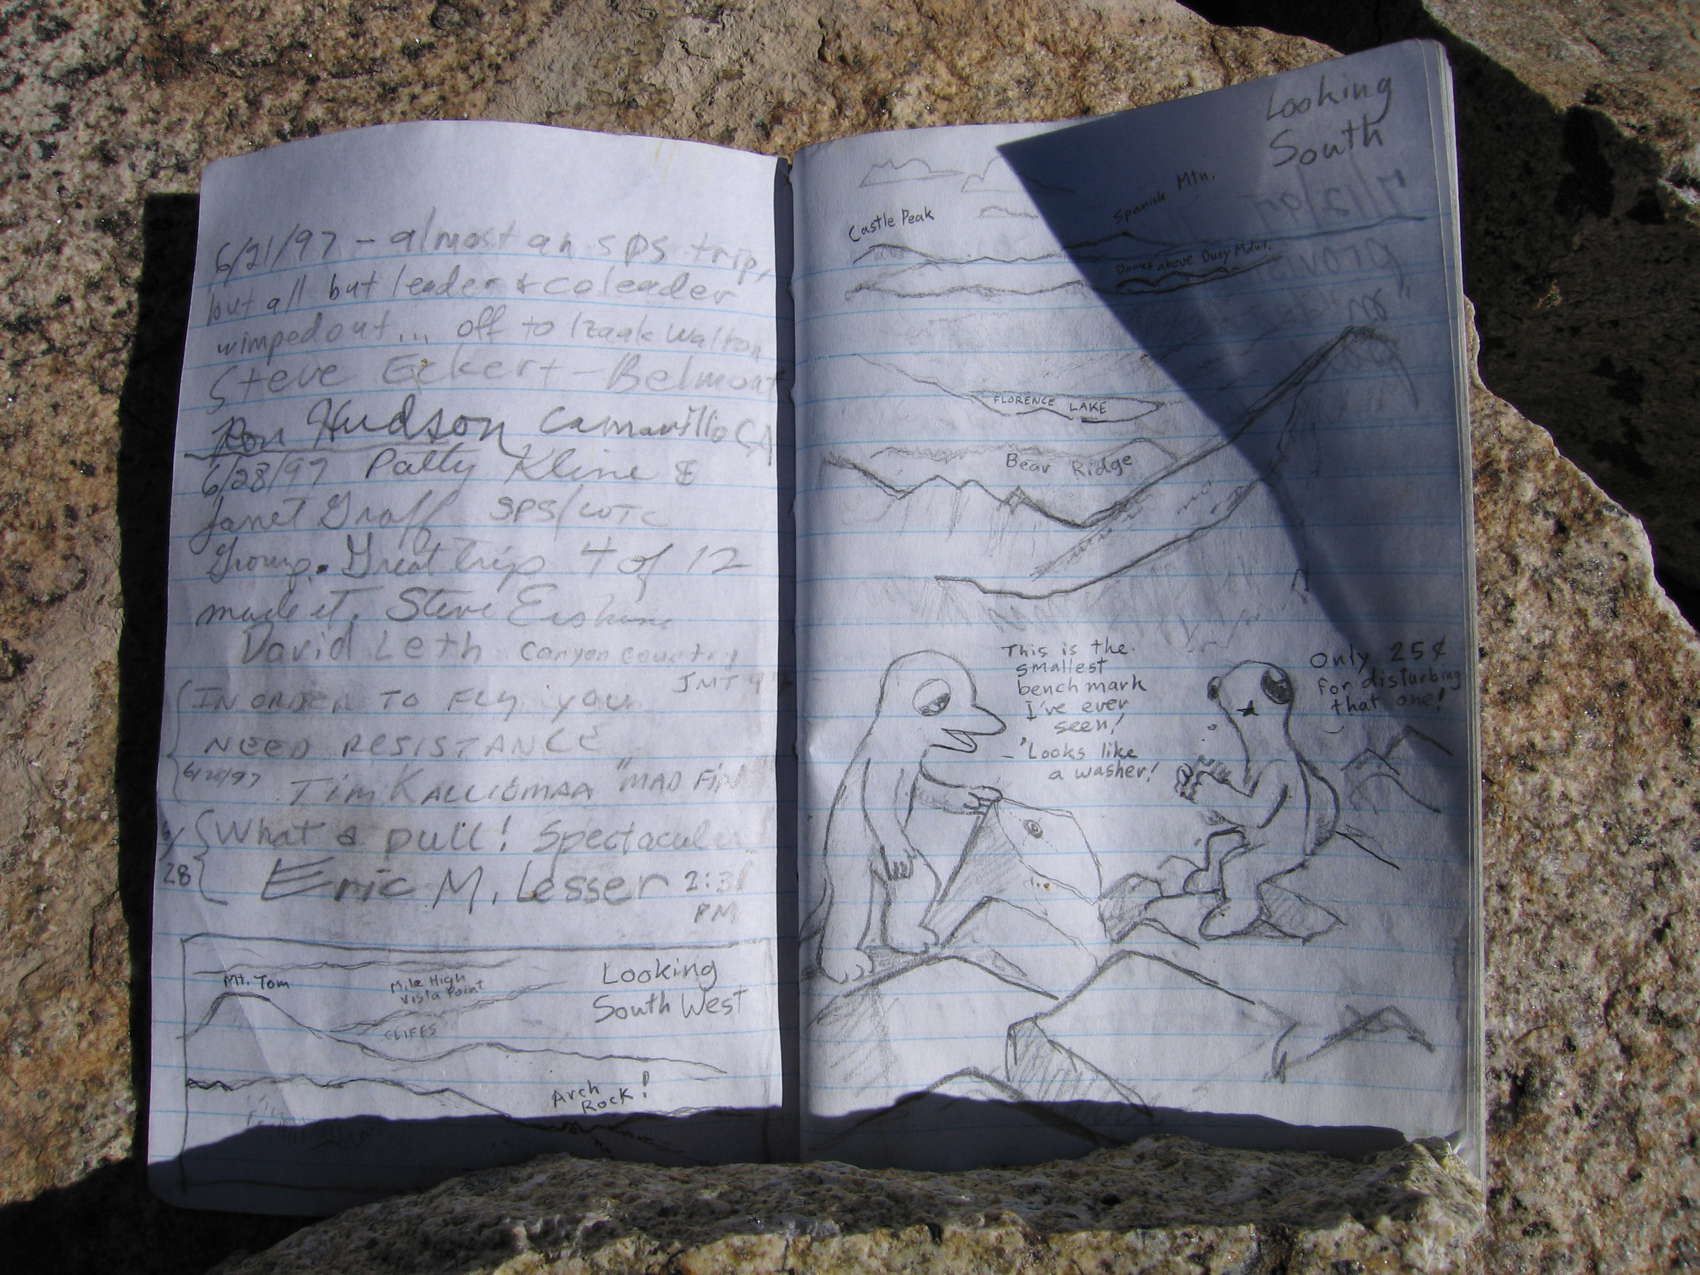 6/21/97 - almost an SPS trip,
but all but leader & coleader
wimped out... off to Izaak Walton
Steve Eckert - Belmont
Ron Hudson Camarillo CA
6/28/97 Patty Kline &
Janet Graff SPS/WTC
Group. Great trip 4 of 12
made it. Steve
David Leth canyon country
JMT
IN ORDER TO FLY YOU
NEED RESISTANCE
TIM KALLIOMAA "MAD FIN
What a pull! Spectacular
28 Eric M. Lesser 2:31
PM
Looking
South West
Mt. Tom
Mile High
Vista Point
CLIFFS
Arch
Rock!
Looking
South
Castle Peak
Spanish Mtn.
Domes above Dusy Mdw.
FLORENCE LAKE
Bear Ridge
This is the
smallest
bench mark
I've ever
seen!
'Looks like
a washer!
Only 25¢
for disturbing
that one!